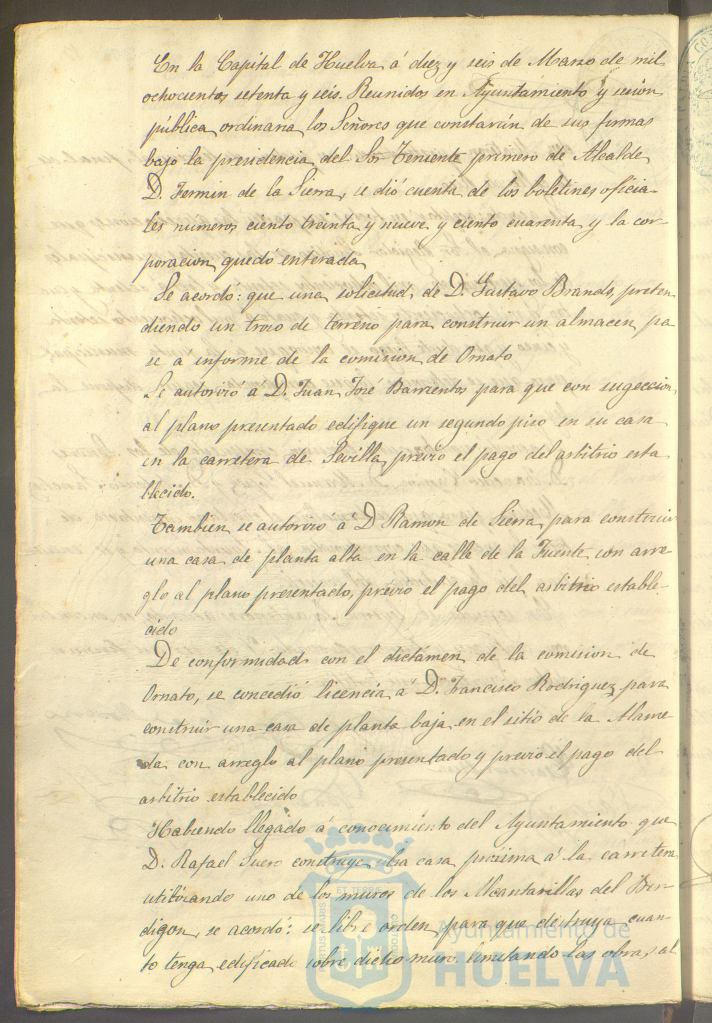 En la Capital de Huelva á diez y seis de Marzo de mil
ochocientos setenta y seis. Reunidos en Ayuntamiento y sesion
pública ordinaria los Señores que constarán de sus firmas
bajo la presidencia del Sor. Teniente primero de Alcalde
D. Fermin de la Sierra, se dió cuenta de los boletines oficia-
les numeros ciento treinta y nueve y ciento cuarenta y la cor-
poracion quedó enterada
Se acordó: que una solicitud de D. Gustavo Brands, preten
diendo un trozo de terreno para construir un almacen, pa
se a informe de la comision de Ornato
Se autorizó á D. Juan José Barrientos para que con sugeccion
al plano presentado edifique un segundo piso en su casa
en la carretera de Sevilla, previo el pago del arbitrio esta
blecido.
Tambien se autorizó á D Ramon de Sierra, para construir
una casa de planta alta en la calle de la Fuente con arre-
glo al plano presentado, previo el pago del arbitrio estable-
cido
De conformidad con el dictámen de la comision de
Ornato, se concedió licencia á D. Francisco Rodriguez para
construir una casa de planta baja en el sitio de la Alame-
da con arreglo al plano presentado y previo el pago del
arbitrio establecido
Habiendo llegado á conocimiento del Ayuntamiento que
D. Rafael Suero construye una casa próxima á la carretera
utilizando uno de los muros de las Alcantarillas del Ber-
digon, se acordó: se libre orden para que destruya cuan-
to tenga edificado sobre dicho muro limitando las obras al
Ayuntamiento de
HUELVA